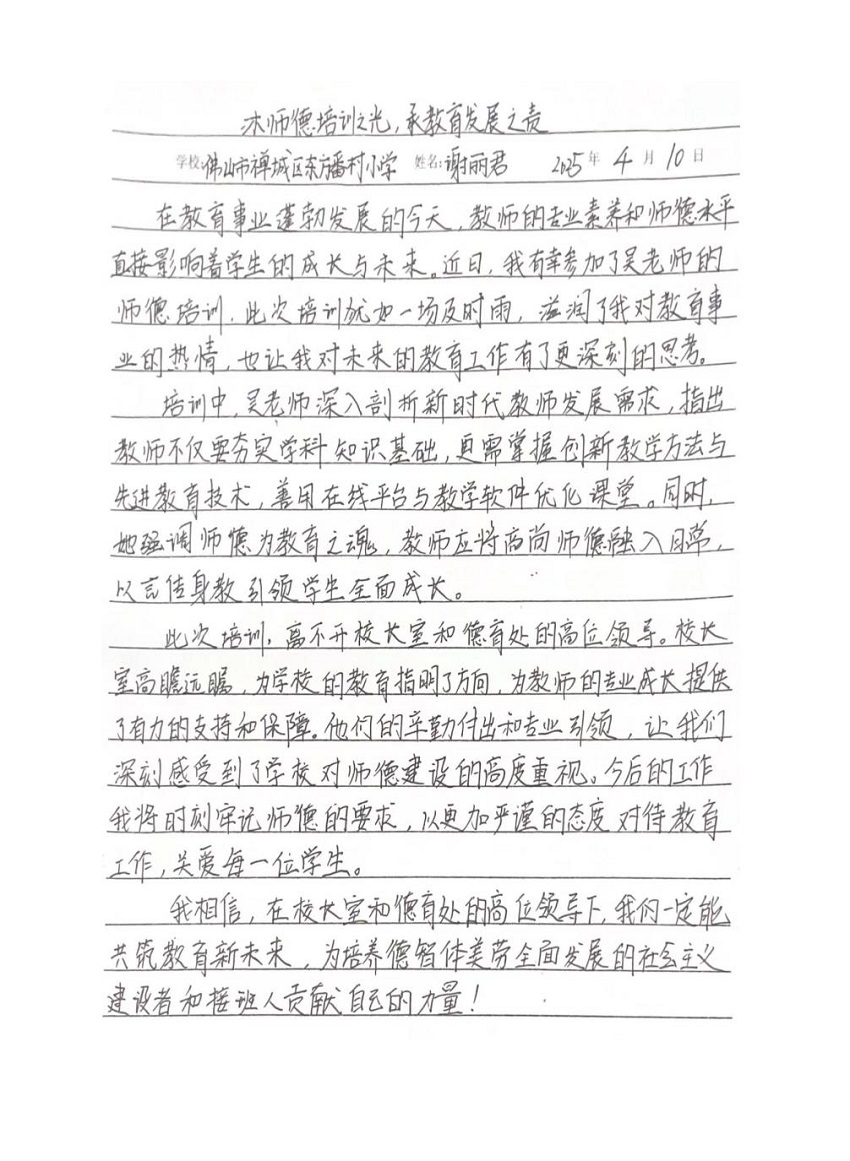 沐师德培训之光，承教育发展之责
学校:佛山市禅城区东方番村小学 姓名:谢丽君 2025年4月10日
在教育事业蓬勃发展的今天，教师的专业素养和师德水平
直接影响着学生的成长与未来。近日，我有幸参加了吴老师的
师德培训，此次培训犹如一场及时雨，滋润了我对教育事
业的热情，也让我对未来的教育工作有了更深刻的思考。
培训中，吴老师深入剖析新时代教师发展需求，指出
教师不仅要夯实学科知识基础，更需掌握创新教学方法与
先进教育技术，善用在线平台与教学软件优化课堂。同时，
她强调师德为教育之魂，教师应将高尚师德融入日常，
以言传身教引领学生全面成长。
此次培训，离不开校长室和德育处的高位领导。校长
室高瞻远瞩，为学校的教育指明了方向，为教师的专业成长提供
了有力的支持和保障。他们的辛勤付出和专业引领，让我们
深刻感受到了学校对师德建设的高度重视。今后的工作
我将时刻牢记师德的要求，以更加严谨的态度对待教育
工作，关爱每一位学生。
我相信，在校长室和德育处的高位领导下，我们一定能
共筑教育新未来，为培养德智体美劳全面发展的社会主义
建设者和接班人贡献自己的力量！